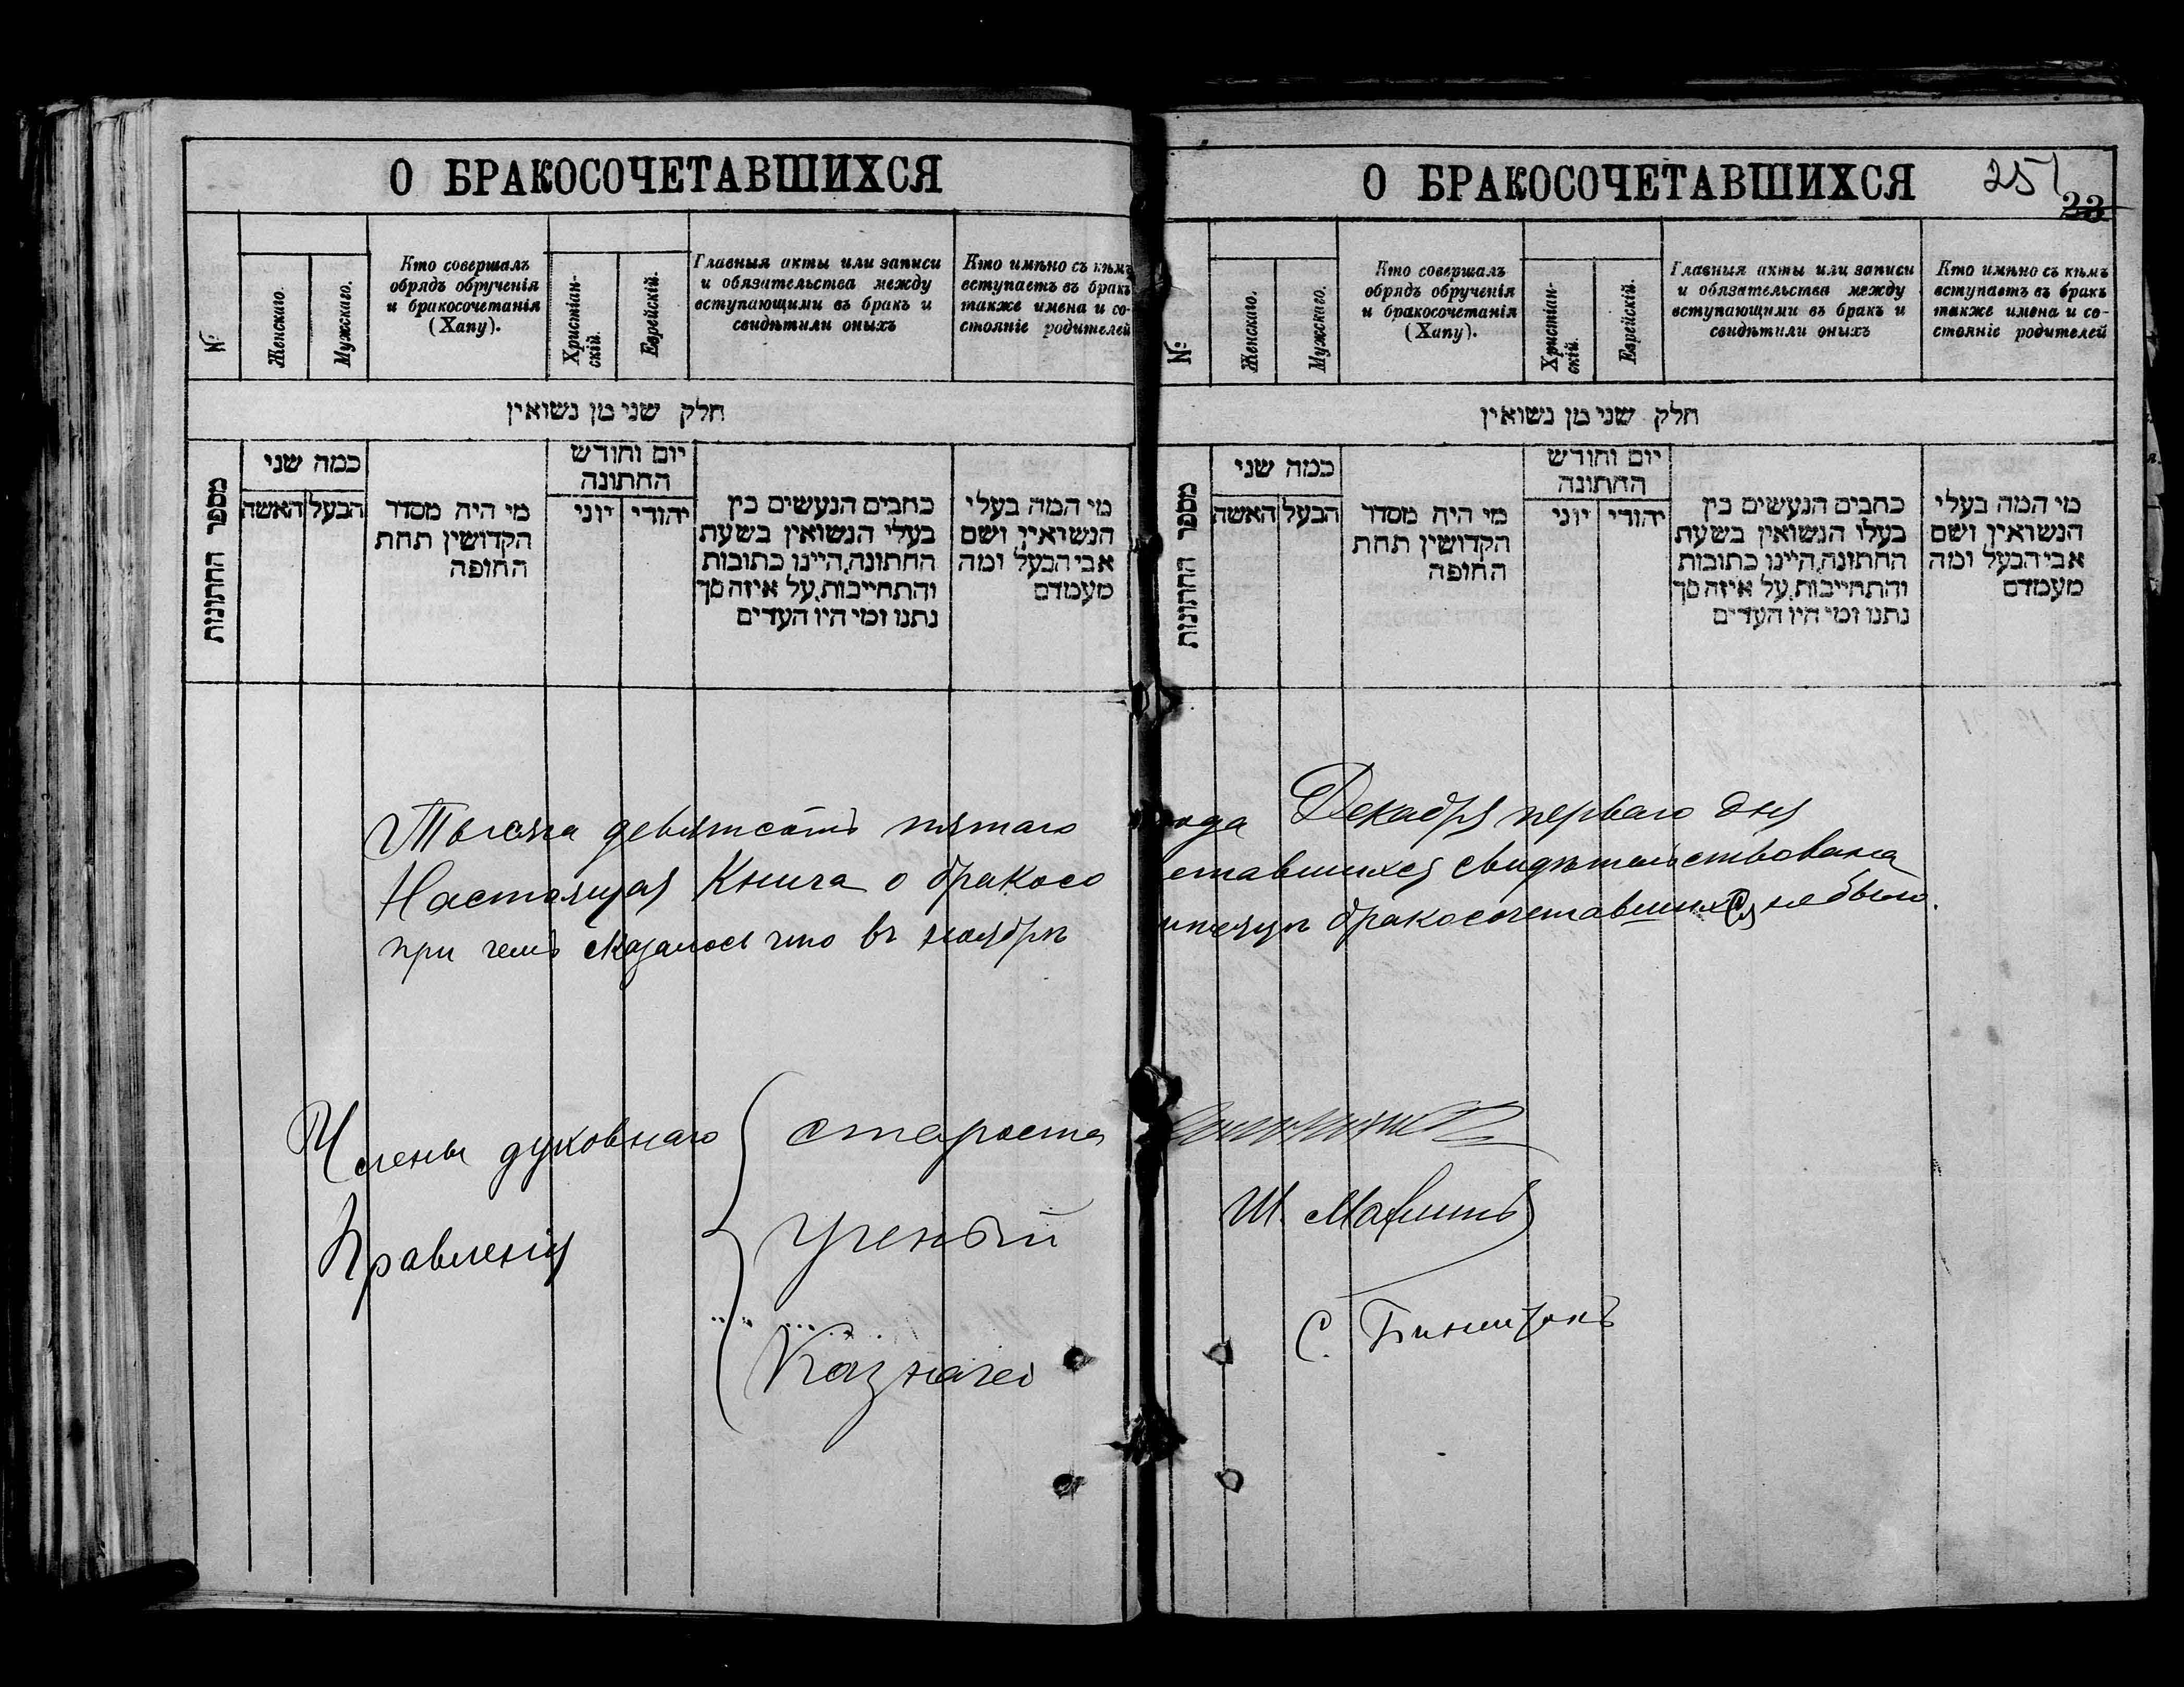 О БРАКОСОЧЕТАВШИХСЯ
№
Женскаго.
Мужскаго.
Кто совершалъ
обрядъ обрученія
и бракосочетанія
(Хапу).
Христіан-
скій.
Еврейскій.
Главныя акты или записи
и обязательства между
вступающими въ бракъ и
свидѣтили оныхъ
Кто имѣно съ кѣмъ
вступаетъ въ бракъ
также имена и со-
стояніе родителей
חלק שני מן נשואין
מספר החתונות
כמה שני
האשה
הבעל
מי היה מסדר
הקדושין תחת
החופה
יום וחודש
החתונה
יוני
יהודי
כתבים הנעשים בין
בעלי הנשואין בשעת
החתונה, היינו כתובות
והתחייבות, על איזה סך
נתנו ומי היו העדים
מי המה בעלי
הנשואין ושם
אבי הבעל ומה
מעמדם
О БРАКОСОЧЕТАВШИХСЯ
251
23
№
Женскаго.
Мужскаго.
Кто совершалъ
обрядъ обрученія
и бракосочетанія
(Хапу).
Христіан-
скій.
Еврейскій.
Главныя акты или записи
и обязательства между
вступающими въ бракъ и
свидѣтили оныхъ
Кто имѣно съ кѣмъ
вступаетъ въ бракъ
также имена и со-
стояніе родителей
חלק שני מן נשואין
מספר החתונות
כמה שני
האשה
הבעל
מי היה מסדר
הקדושין תחת
החופה
יום וחודש
החתונה
יוני
יהודי
כתבים הנעשים בין
בעלי הנשואין בשעת
החתונה, היינו כתובות
והתחייבות, על איזה סך
נתנו ומי היו העדים
מי המה בעלי
הנשואין ושם
אבי הבעל ומה
מעמדם
Тысяча девятсотъ пятаго года Декабря перваго дня
Настоящая Книга о бракосо етавшихся свидѣтельствована
при чемъ оказалось что въ ноябрѣ бракосочетавшихся не было.
Члены духовнаго
Правленія
староста
ученый Ш.
казначей С.